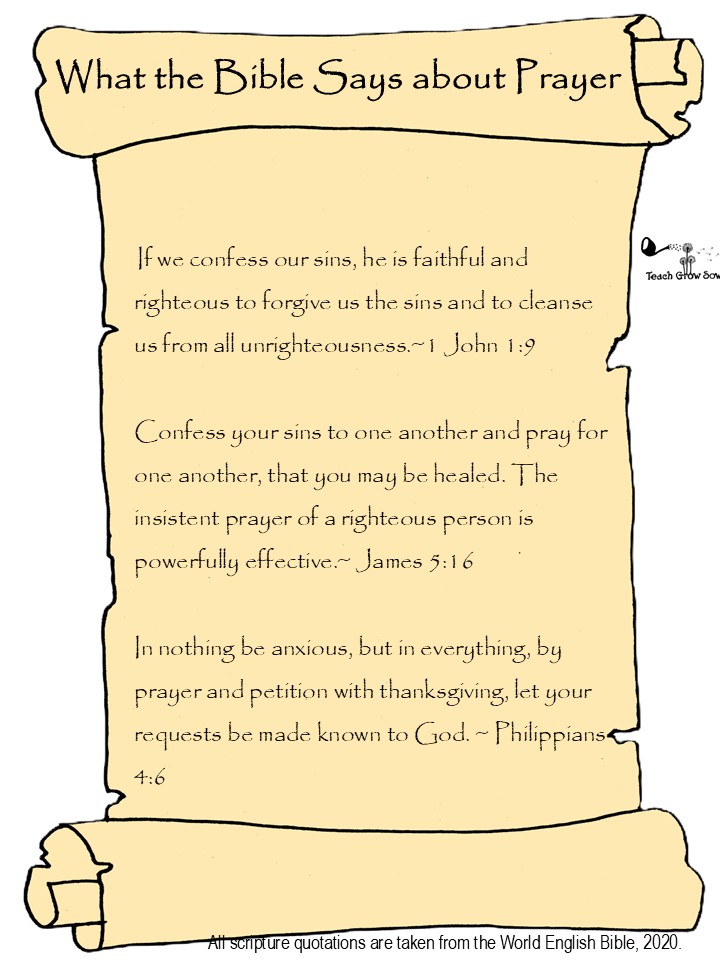 What the Bible Says about Prayer
If we confess our sins, he is faithful and
righteous to forgive us the sins and to cleanse
us from all unrighteousness.~1 John 1:9
Teach Grow Sow
Confess your sins to one another and pray for
one another, that you may be healed. The
insistent prayer of a righteous person is
powerfully effective.~ James 5:16
In nothing be anxious, but in everything, by
prayer and petition with thanksgiving, let your
requests be made known to God. ~ Philippians
4:6
All scripture quotations are taken from the World English Bible, 2020.